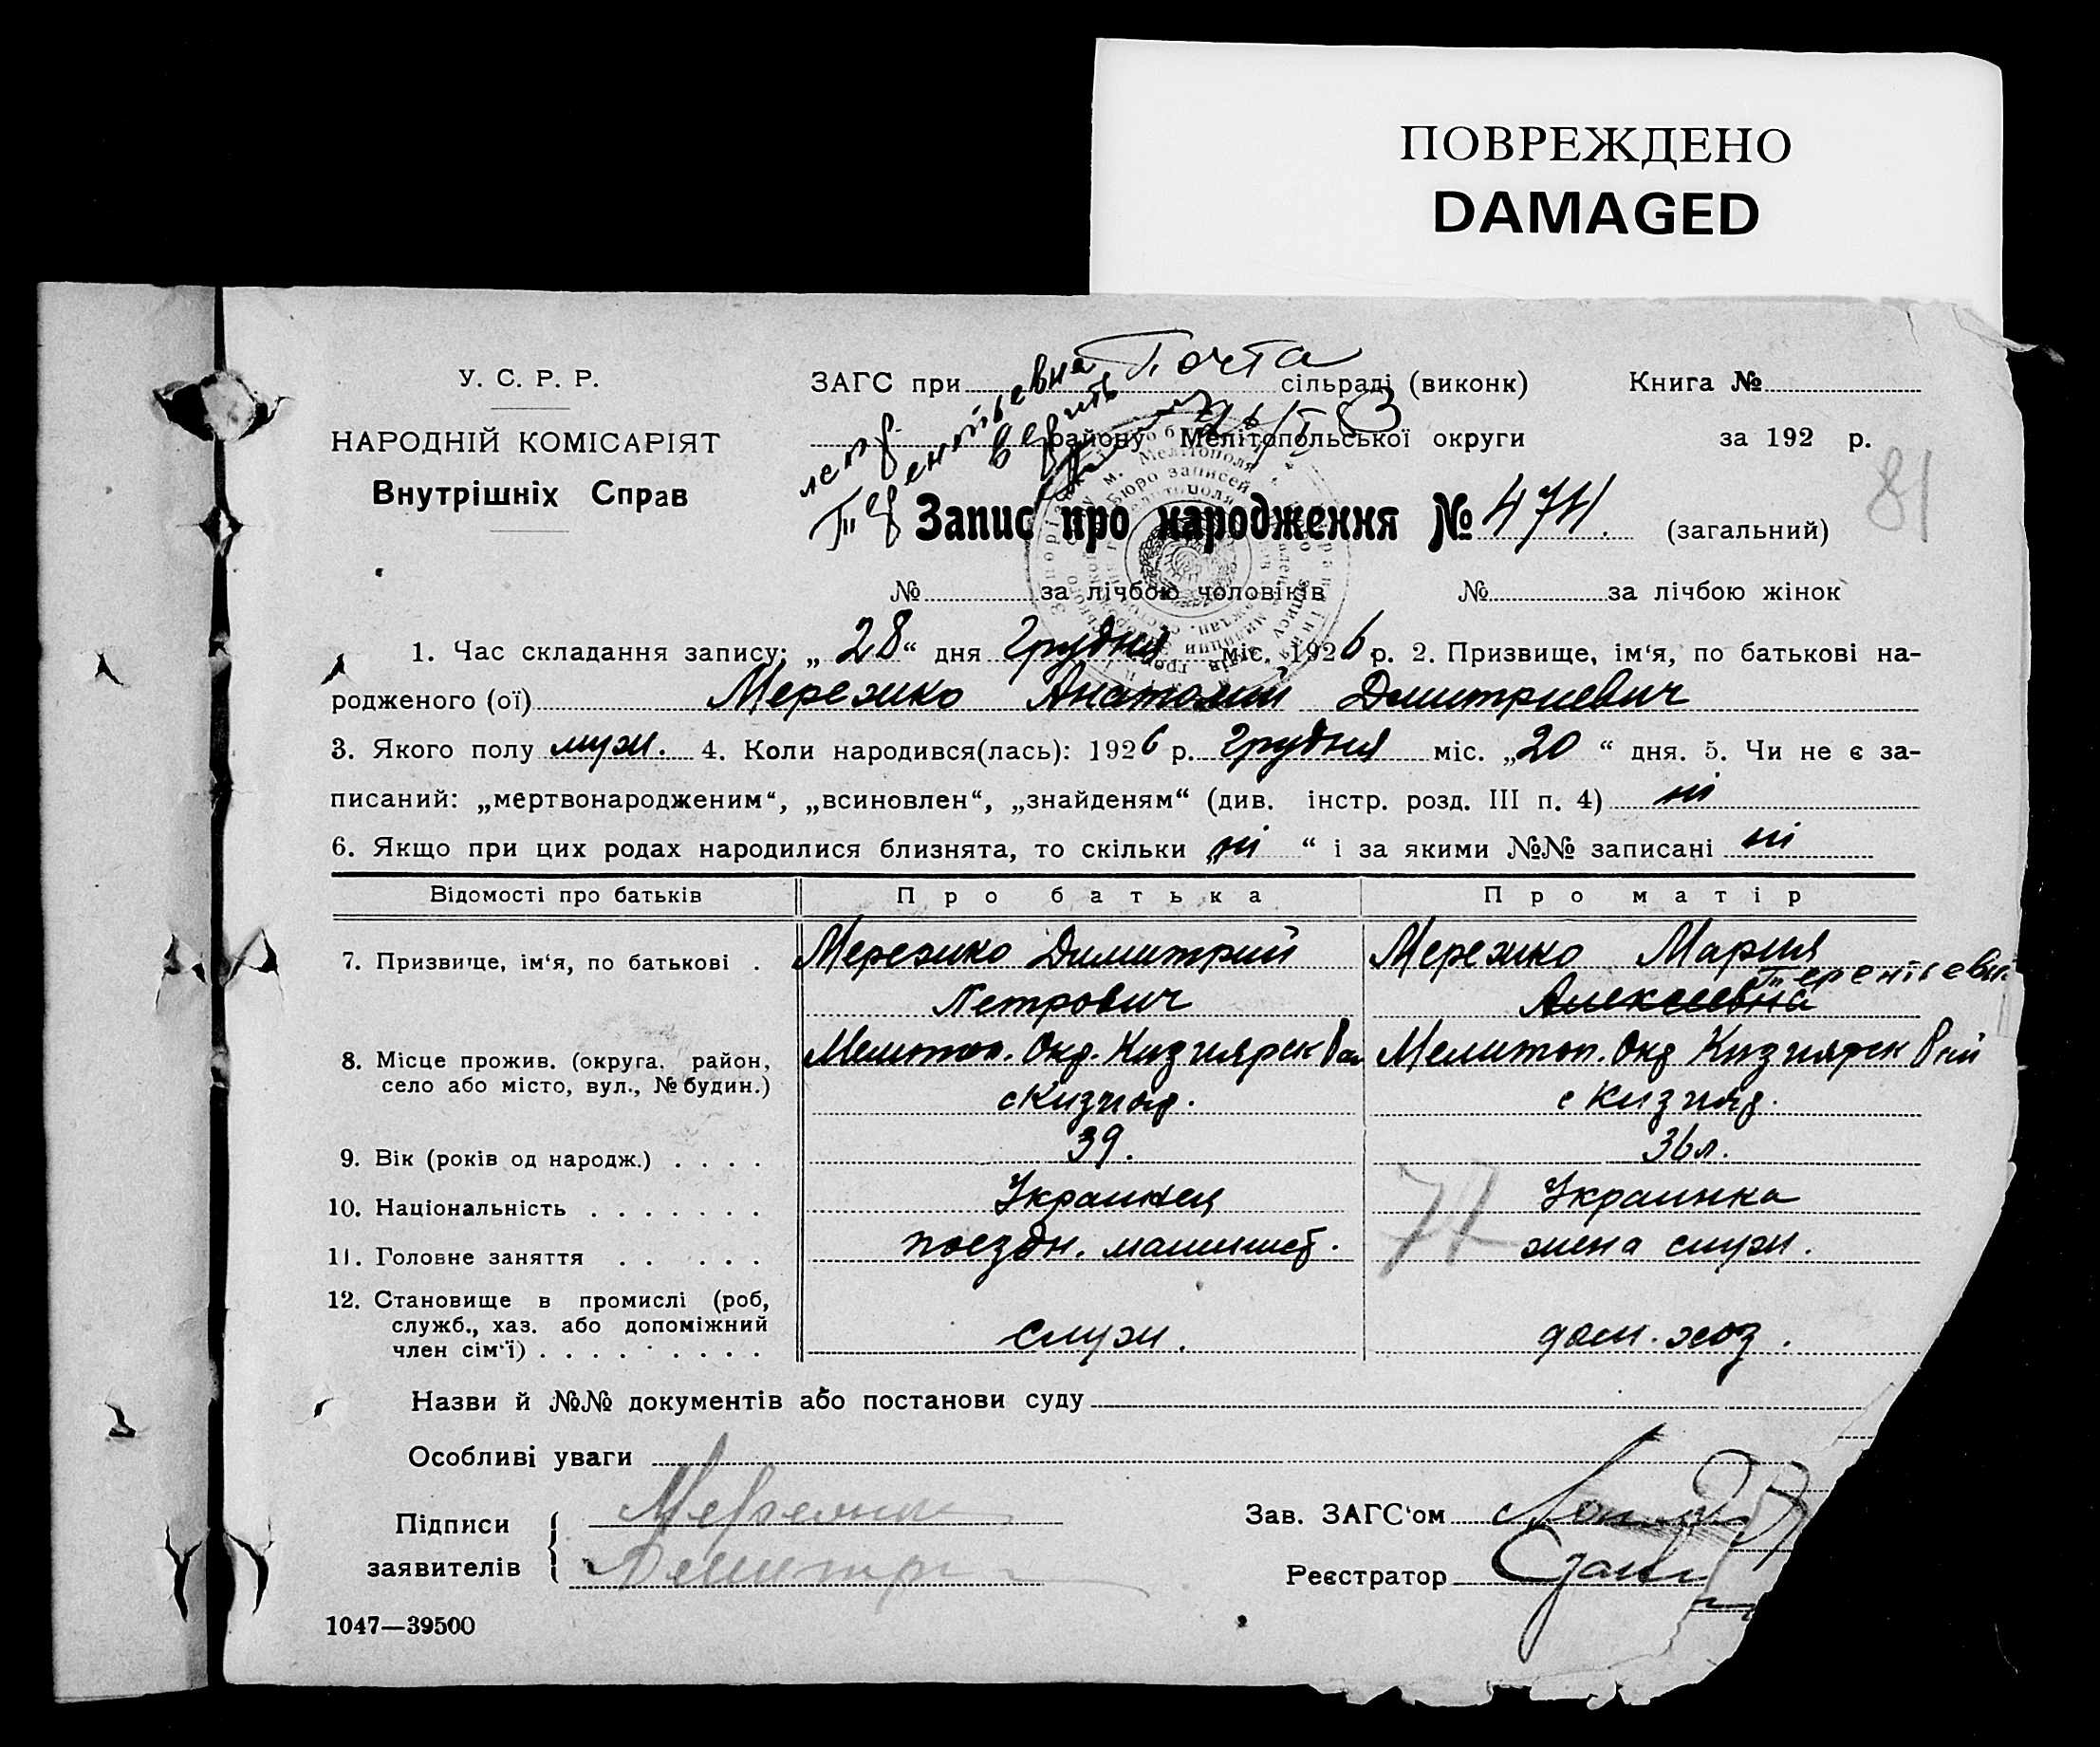 ПОВРЕЖДЕНО
DAMAGED
У. С. Р. Р.
НАРОДНІЙ КОМІСАРІЯТ
Внутрішніх Справ
ЗАГС при Почта сільраді (виконк) Книга №
району Мелітопольської округи за 192 р.
81
Терентьевна верить
Запис про народження № 474. (загальний)
№ за лічбою чоловіків № за лічбою жінок
1. Час складання запису: „28“ дня Грудня міс. 1926 р. 2. Призвище, ім‘я, по батькові на-
родженого (ої) Мережко Анатолий Димитриевич
3. Якого полу муж. 4. Коли народився(лась): 1926 р. Грудня міс. „20“ дня. 5. Чи не є за-
писаний: „мертвонародженим“, „всиновлен“, „знайденям“ (див. інстр. розд. III п. 4) ні
6. Якщо при цих родах народилися близнята, то скільки „ні“ і за якими №№ записані ні
Відомості про батьків Про батька Про матір
7. Призвище, ім‘я, по батькові . Мережко Димитрий Мережко Мария
Терентьевн
Петрович Алексеевна
8. Місце прожив. (округа, район, Мелитоп. Окр. Кизиярск Рай Мелитоп. Окр Кизиярск Рай
село або місто, вул., № будин.) с Кизияр. с Кизияр.
9. Вік (років од народж.) . . . . 39. 36 л.
10. Національність . . . . . . . Украинец Украинка
11. Головне заняття . . . . . поездн. машинист. жена служ.
77
12. Становище в промислі (роб,
служб., хаз. або допоміжний служ. дом. хоз.
член сім‘ї) . . . . . . . . .
Назви й №№ документів або постанови суду
Особливі уваги
Підписи Мережко Зав. ЗАГС‘ом
заявителів Димитри Реєстратор
1047—39500